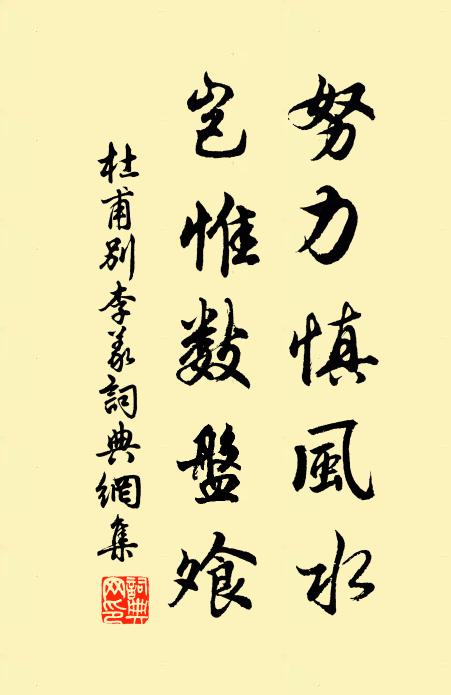 努力慎風水
豈惟數盤飧
杜甫別李義詞典網集
詞典网印